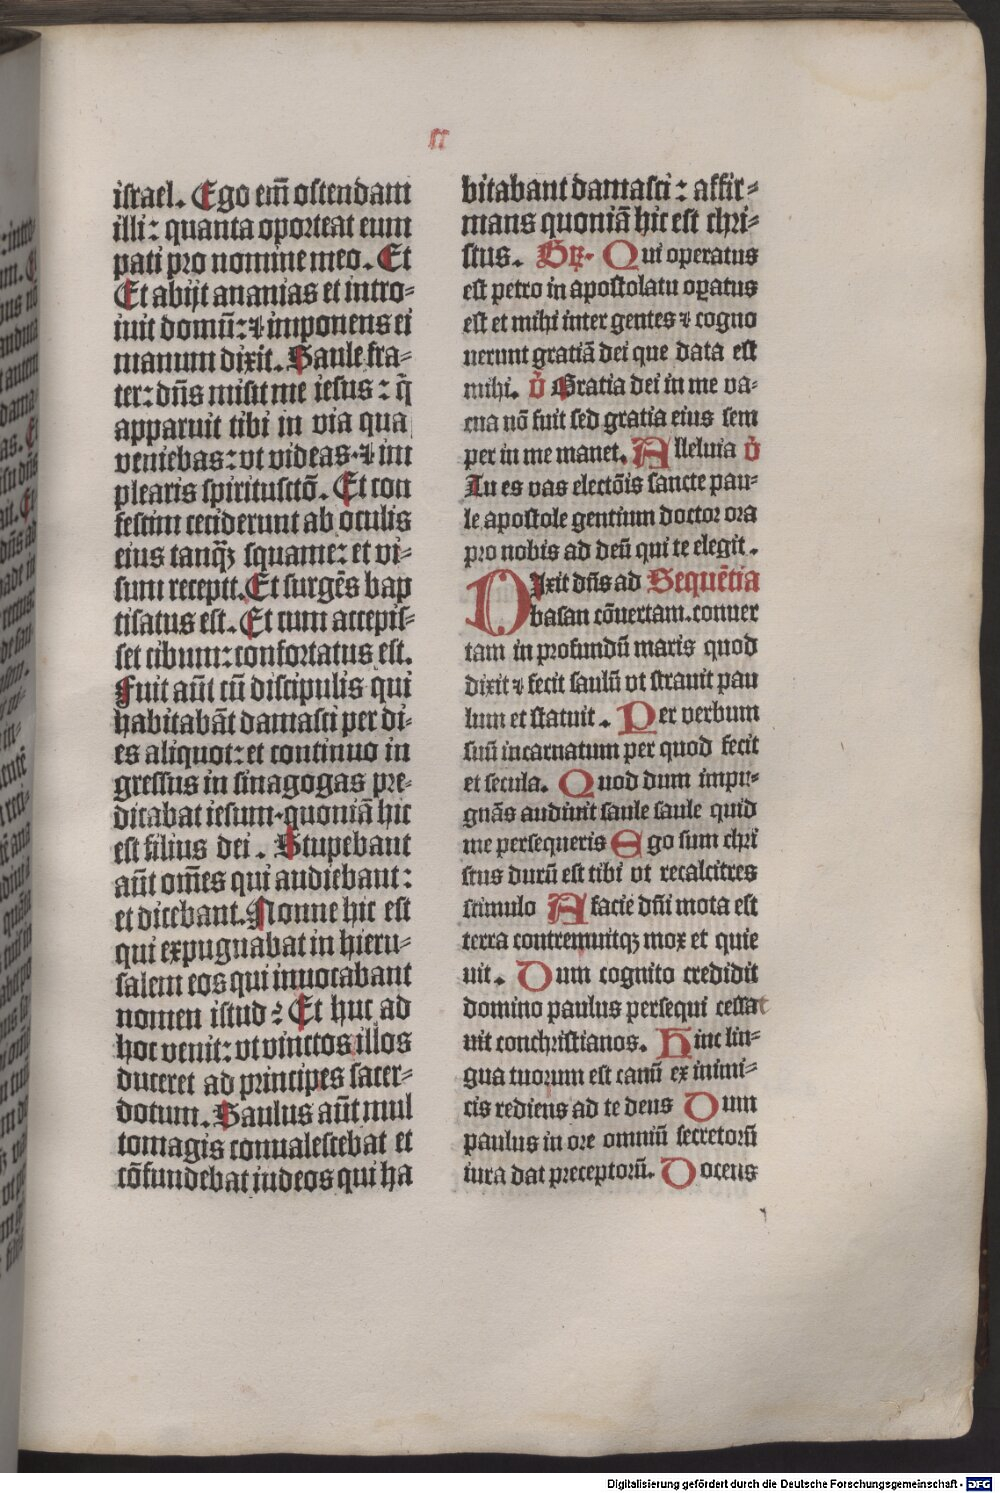 israel. Ego em̄ ostendam
illi: quanta oporteat eum
pati pro nomine meo. Et
Et abijt ananias et intro-
iuit domū: ⁊ imponens ei
manum dixit. Saule fra-
ter: dn̄s misit me iesus: q̄
apparuit tibi in via qua
veniebas: vt videas. ⁊ im
plearis spiritusctō. Et con
festim ceciderunt ab oculis
eius tanqꝫ squame: et vi-
sum recepit. Et surgēs bap
tisatus est. Et cum accepis-
set cibum: confortatus est.
Fuit aūt cū discipulis qui
habitabāt damasci per di-
es aliquot: et continuo in
gressus in sinagogas pre-
dicabat iesum. quoniā hic
est filius dei. Stupebant
aūt om̄es qui audiebant:
et dicebant. Nonne hic est
qui expugnabat in hieru-
salem eos qui inuocabant
nomen istud? Et huc ad
hoc venit: vt vinctos illos
duceret ad principes sacer-
dotum. Saulus aūt mul
tomagis conualescebat et
cōfundebat iudeos qui ha
bitabant damasci: affir-
mans quoniā hic est chri-
stus. Gꝛ. Qui operatus
est petro in apostolatu oꝑatus
est et mihi inter gentes ⁊ cogno
uerunt gratiā dei que data est
mihi. v̄ Gratia dei in me va-
cua nō fuit sed gratia eius sem
per in me manet. Alleluia v̄
Tu es vas electōis sancte pau-
le apostole gentium doctor ora
pro nobis ad deū qui te elegit.
Dixit dn̄s ad Sequētia
basan cōuertam. conuer
tam in profundū maris quod
dixit ⁊ fecit saulū vt strauit pau
lum et statuit. Per verbum
suū incarnatum per quod fecit
et secula. Quod dum impu-
gnās audiuit saule saule quid
me persequeris Ego sum chri
stus durū est tibi vt recalcitres
stimulo A facie dn̄i mota est
terra contremuitqꝫ mox et quie
uit. Dum cognito credidit
domino paulus persequi cessa
uit conchristianos. Hinc lin-
gua tuorum est canū ex inimi-
cis rediens ad te deus Dum
paulus in ore omniū secretorū
iura dat preceptorū. Docens
Digitalisierung gefördert durch die Deutsche Forschungsgemeinschaft - DFG